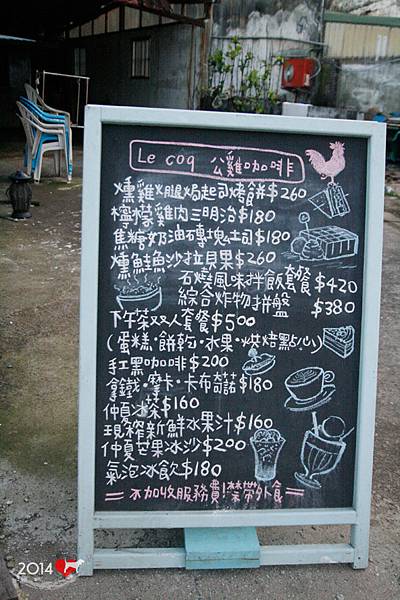 Le coq 公雞咖啡
燻雞火腿焗起司烤餅$260
檸檬雞肉三明治$180
焦糖奶油磚塊土司$180
燻鮭魚沙拉貝果$260
石燒風味拌飯套餐$420
綜合炸物拼盤 $380
下午茶双人套餐$500
(蛋糕·餅乾·水果·烘焙點心)
手工黑咖啡$200
拿鐵·摩卡·卡布奇諾$180
仲夏冰茶$160
現榨新鮮水果汁$160
仲夏芒果冰沙$200
氣泡冰飲$180
=不加收服務費!禁帶外食=
2014